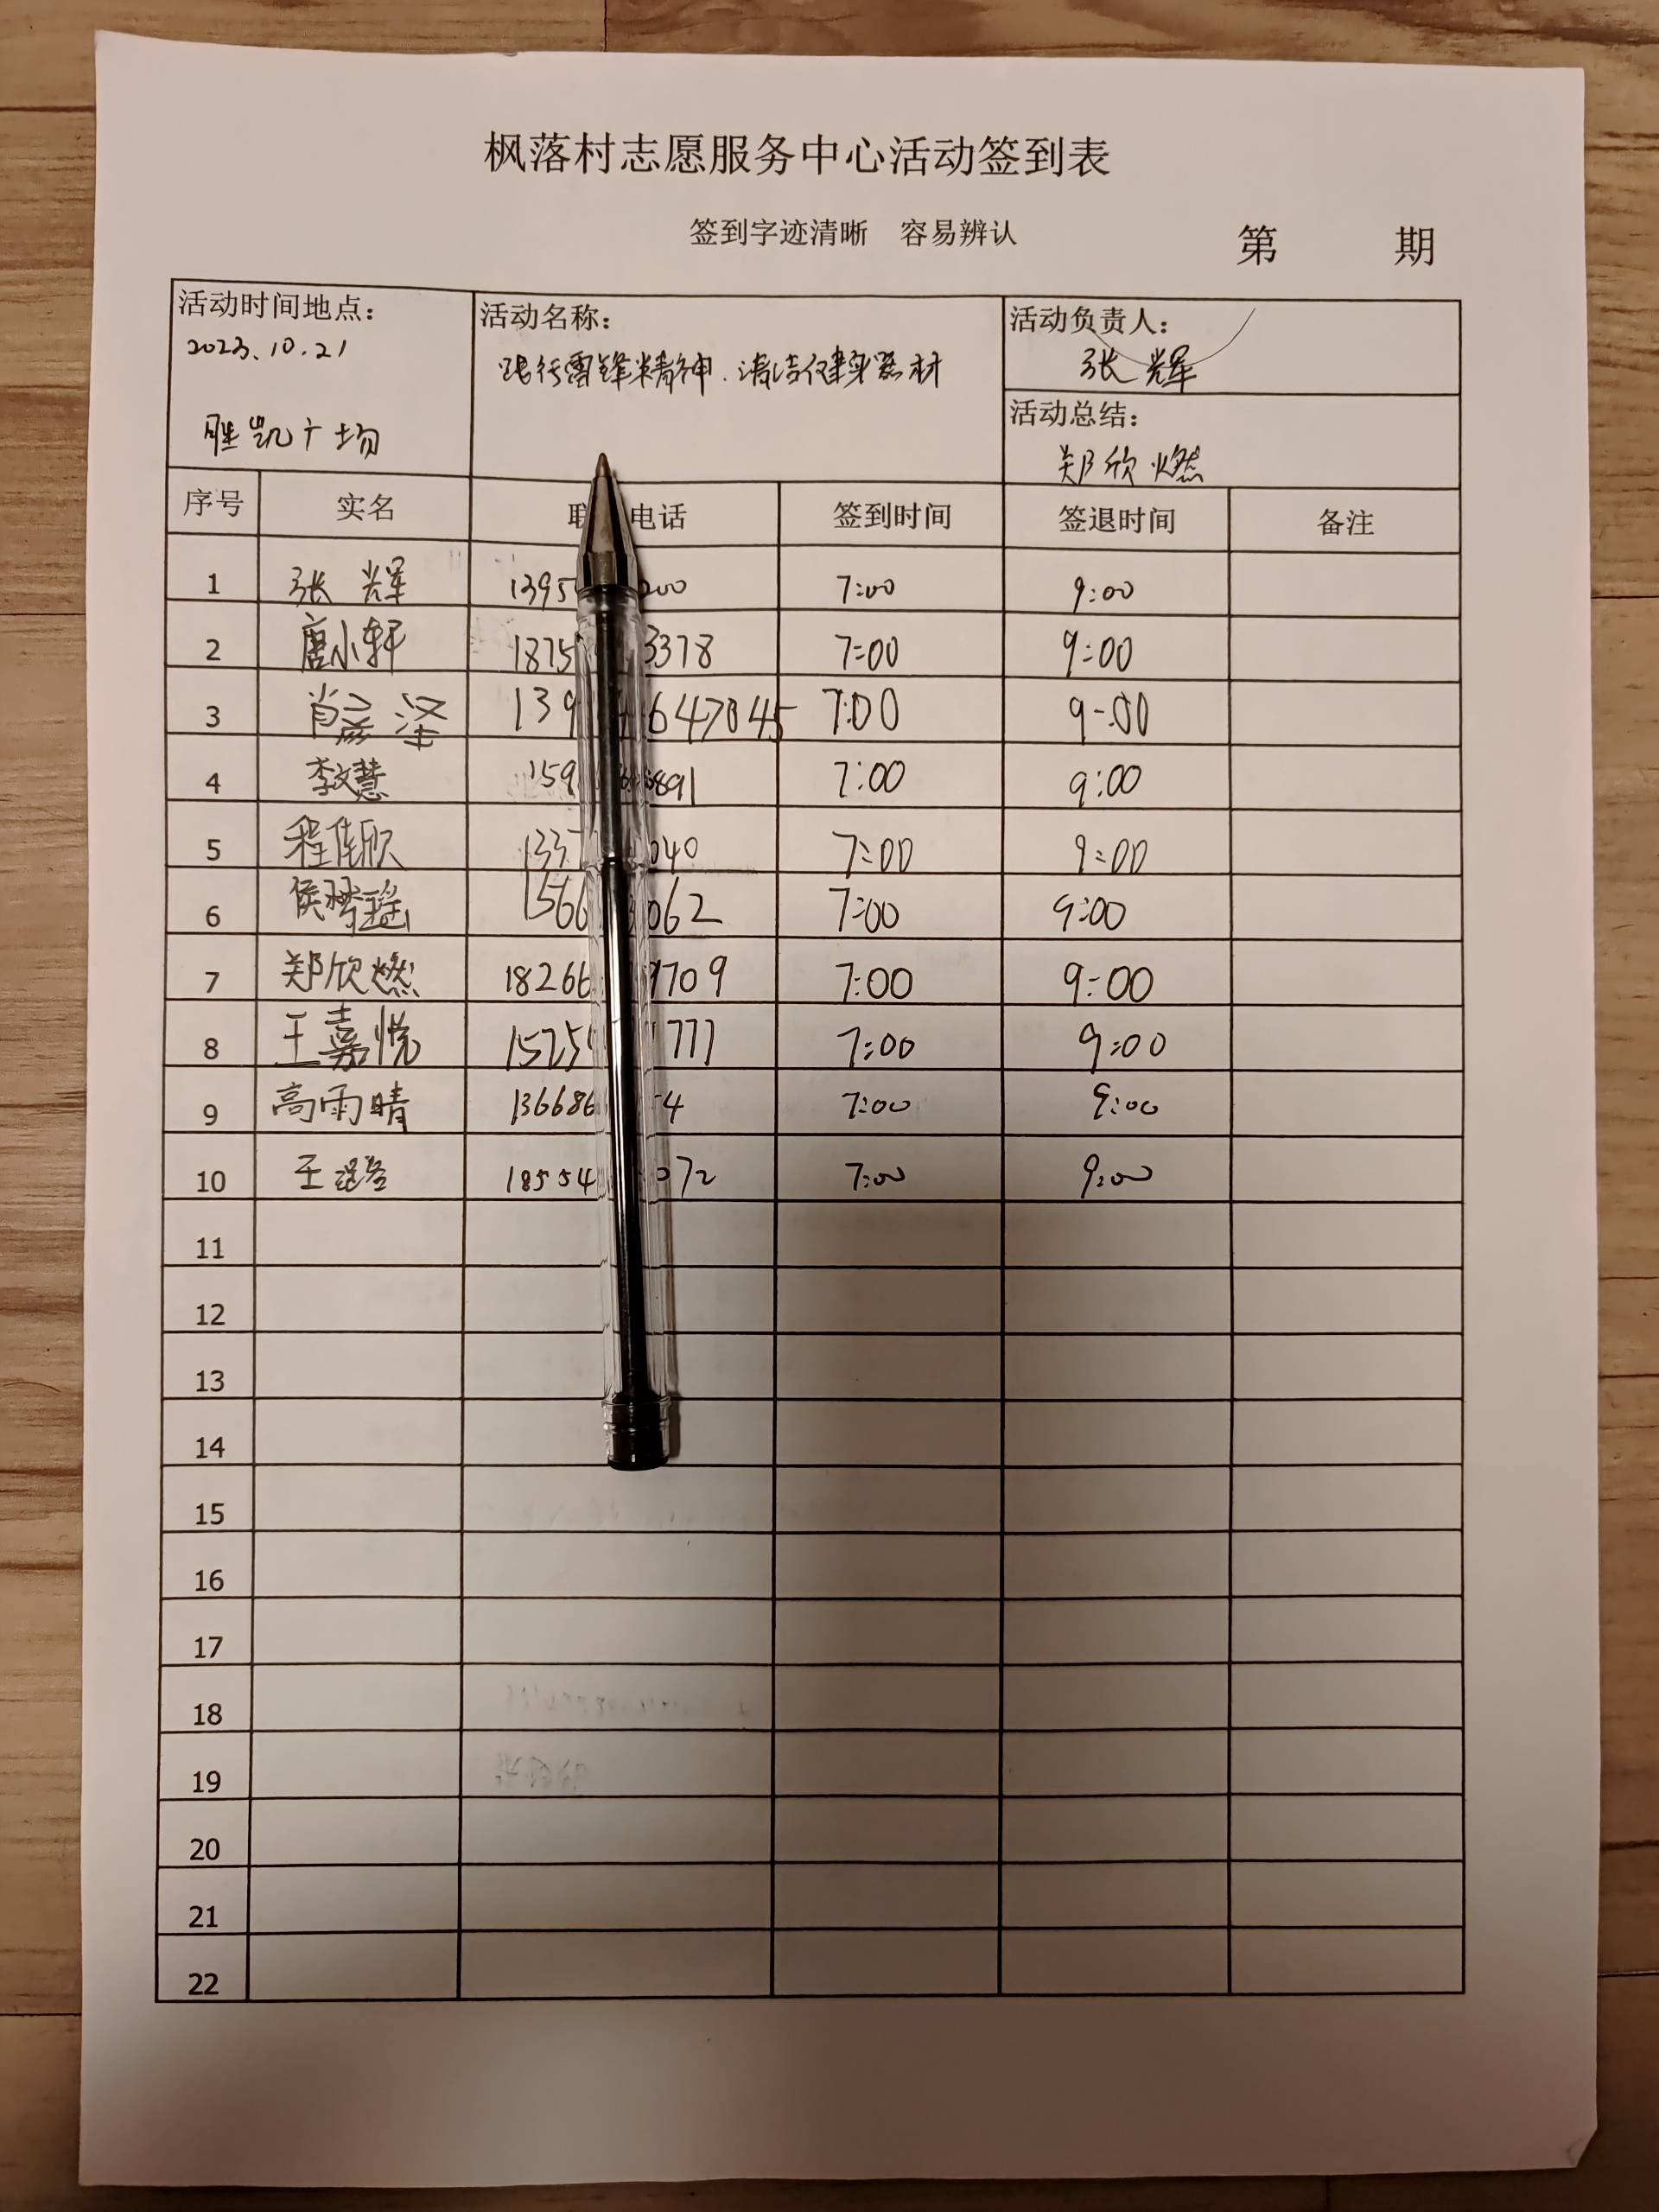 枫落村志愿服务中心活动签到表
签到字迹清晰 容易辨认
第 期
活动时间地点：
2023.10.21
胜凯广场
活动名称：
践行雷锋精神.清洁健身器材
活动负责人：
张辉
活动总结：
郑欣燃
序号 实名 联 电话 签到时间 签退时间 备注
1 张辉 1395 200 7:00 9:00
2 唐小轩 1875 3378 7:00 9:00
3 肖彦泽 139 647045 7:00 9:00
4 李文慧 159 891 7:00 9:00
5 程佳欣 133 040 7:00 9:00
6 侯 瑶 1566 062 7:00 9:00
7 郑欣燃 18266 9709 7:00 9:00
8 王嘉悦 1525 777 7:00 9:00
9 高雨晴 136686 54 7:00 9:00
10 王 18554 072 7:00 9:00
11
12
13
14
15
16
17
18
19
20
21
22